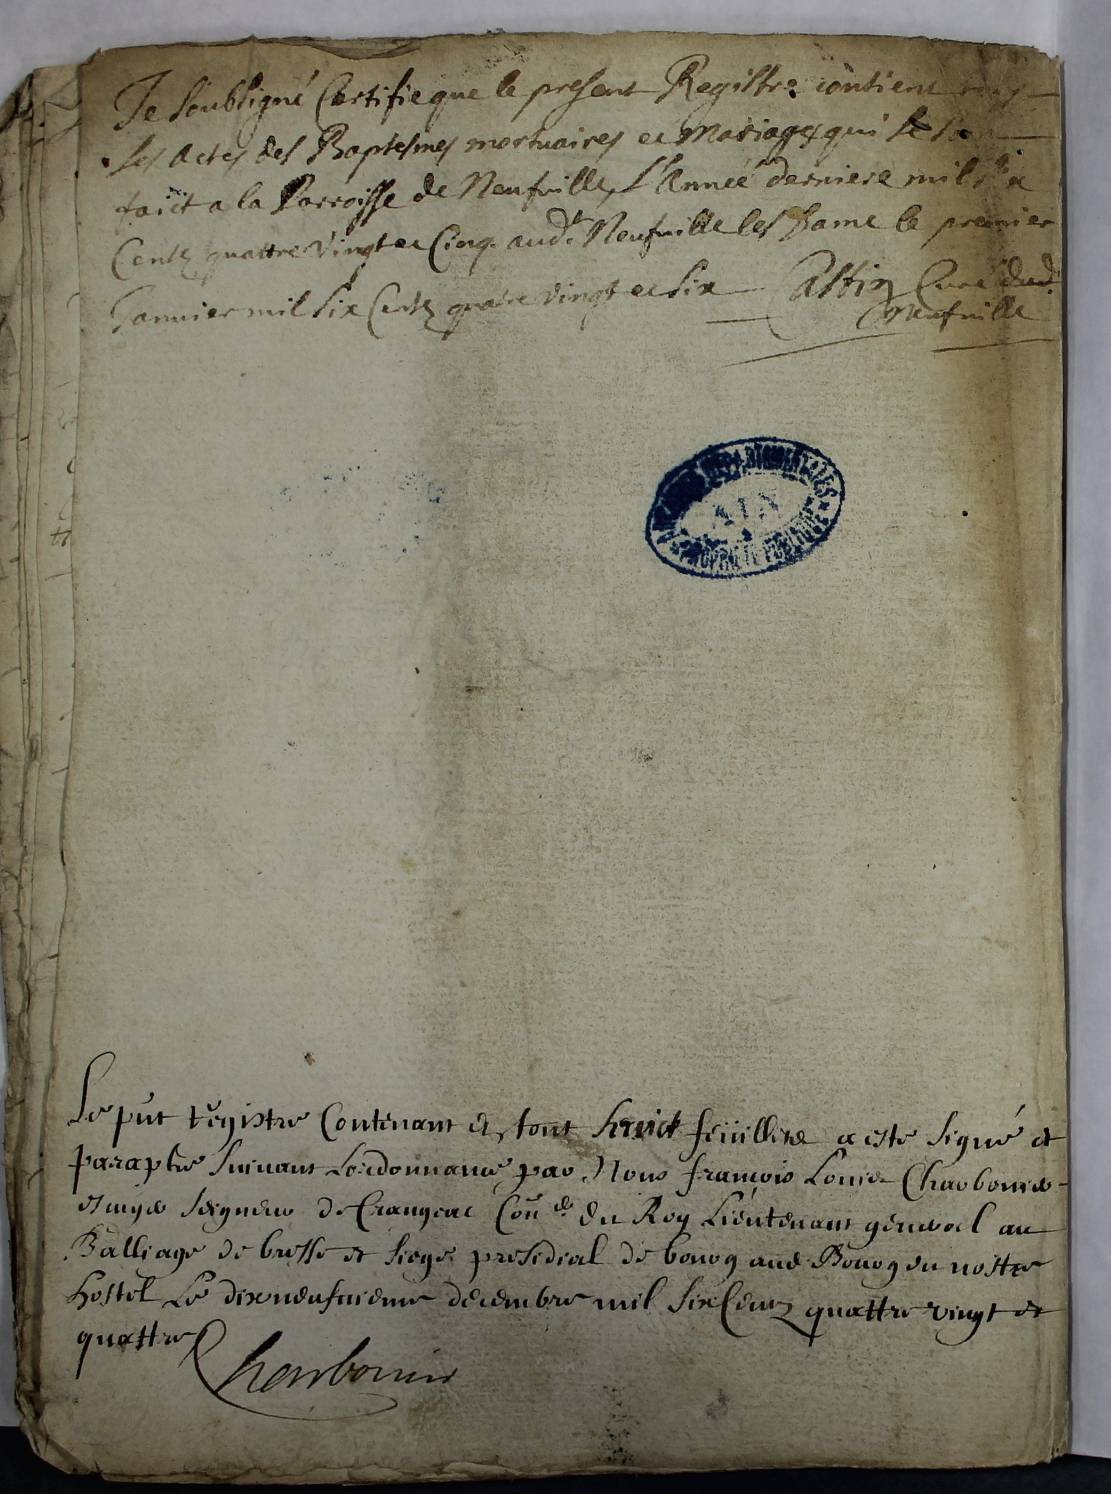 Je soubsigné Certifie que le present Registre contient tous
les actes des Baptesmes mortuaires et Mariages qui se so
faict a la Parroisse de Neufville, L'Année derniere mil six
Centz quattre vingt et Cinq. aud.t Neufville les Dame le premier
Janvier mil six Centz quatre vingt et six Curé dud.
Neufville
ARCHIVES DÉPARTEMENTALES
AIN
PROPRIÉTÉ PUBLIQUE
Le pñt régistre Contenant en tout huict feüillets a esté signé et
paraphé suivant Lordonnance par Nous françois Louis Charbonnier
escuyer seigneur de Crangeac Con.er du Roy Lieutenant general au
Balliage de bresse et siege presidial de bourg aud Bourg en nostre
hostel Le dixneufvieme decembre mil six Centz quattre vingt et
quattre
Charbonnier